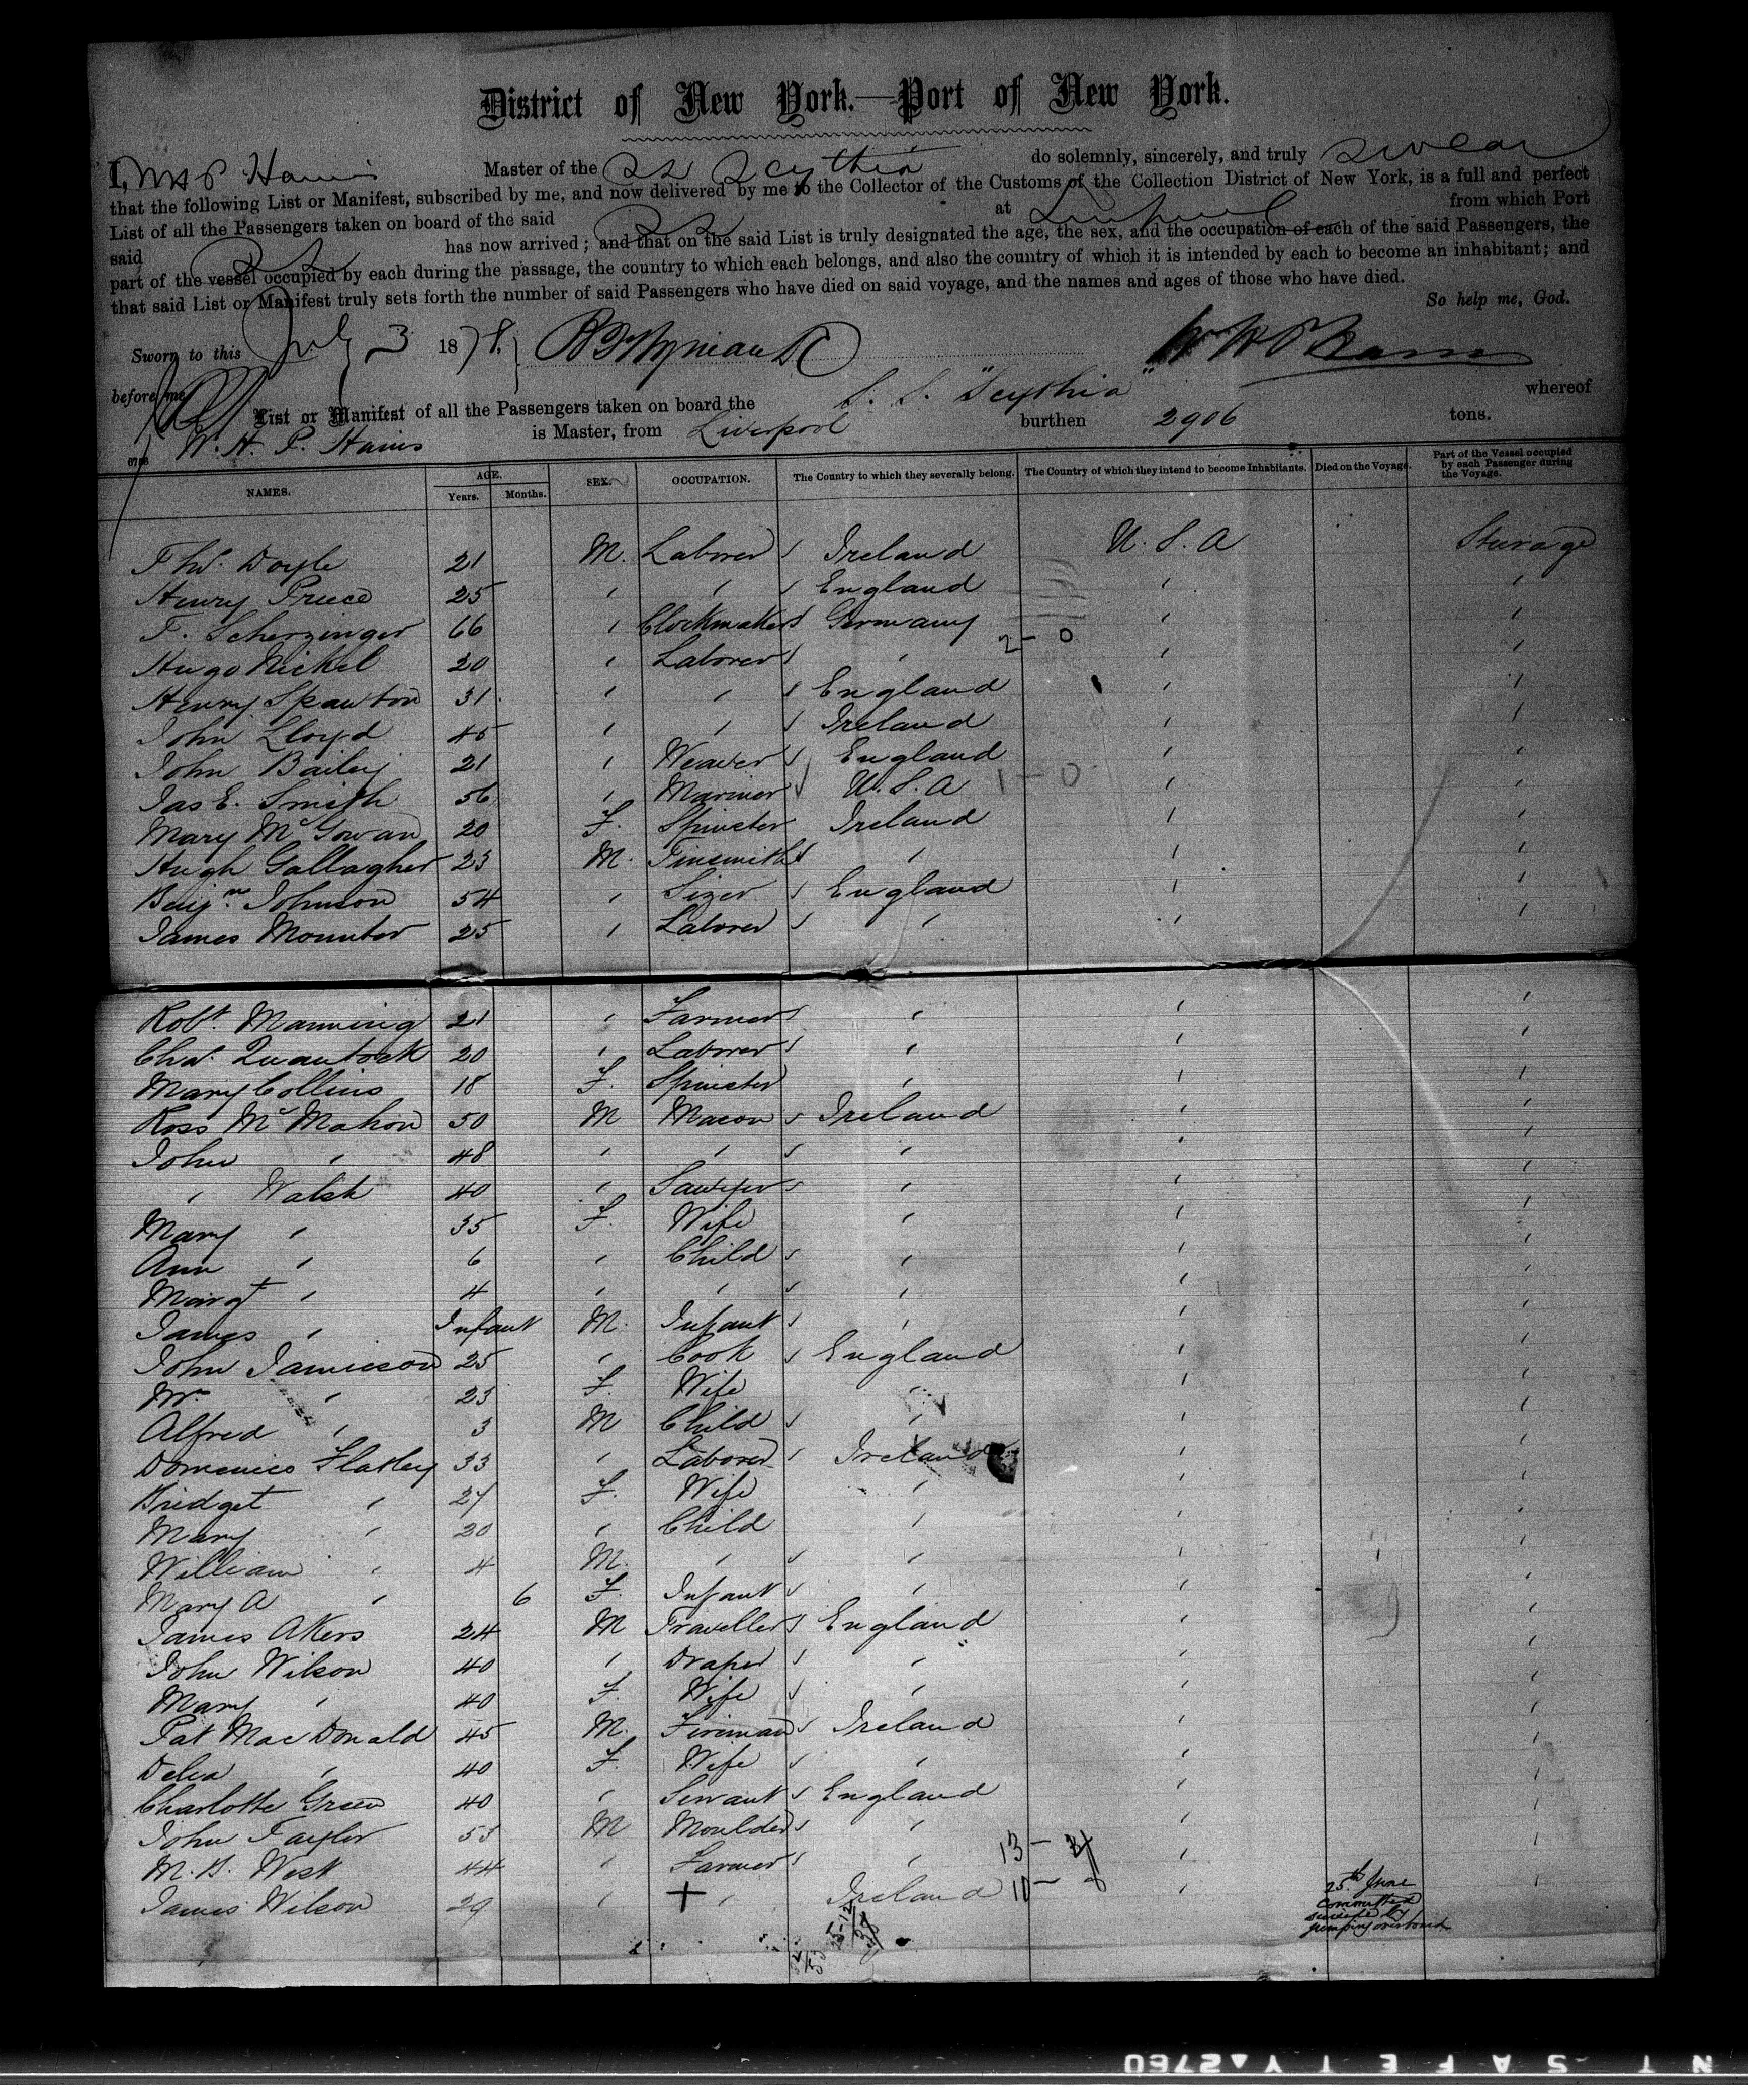 District of New York.—Port of New York.
I, W H P Hains Master of the SS Scythia do solemnly, sincerely, and truly swear
that the following List or Manifest, subscribed by me, and now delivered by me to the Collector of the Customs of the Collection District of New York, is a full and perfect
List of all the Passengers taken on board of the said SS at Liverpool from which Port
said SS has now arrived; and that on the said List is truly designated the age, the sex, and the occupation of each of the said Passengers, the
part of the vessel occupied by each during the passage, the country to which each belongs, and also the country of which it is intended by each to become an inhabitant; and
that said List or Manifest truly sets forth the number of said Passengers who have died on said voyage, and the names and ages of those who have died.
So help me, God.
Sworn to this July 3 1878, W H P Hains
before me
List or Manifest of all the Passengers taken on board the S. S. "Scythia" whereof
W. H. P. Hains is Master, from Liverpool burthen 2906 tons.
NAMES. AGE. Years. Months. SEX. OCCUPATION. The Country to which they severally belong. The Country of which they intend to become Inhabitants. Died on the Voyage. Part of the Vessel occupied by each Passenger during the Voyage.
Thos. Doyle 21 M. Laborer Ireland U. S. A Sturage
Henry Preece 25 " " England " "
F. Scherzinger 66 " Clockmaker Germany " "
2 - 0
Hugo Nickel 20 " Laborer " " "
Henry Spawton 31 " " England " "
John Lloyd 45 " " Ireland " "
John Bailey 21 " Weaver England " "
Jas E. Smith 56 " Mariner U. S. A 1 - 0 " "
Mary McGowan 20 F. Spinster Ireland " "
Hugh Gallagher 23 M. Tinsmith " " "
Benjn. Johnson 54 " Sizer England " "
James Mounter 25 " Laborer " " "
Robt. Manning 21 " Farmer " " "
Chas. Quantock 20 " Laborer " " "
Mary Collins 18 F. Spinster " " "
Ross McMahon 50 M Macon Ireland " "
John " 48 " " " " "
" Walsh 40 " Sawyer " " "
Mary " 35 F. Wife " " "
Ann " 6 " Child " " "
Margt " 4 " " " " "
James " Infant M. Infant " " "
John Jamieson 25 " Cook England " "
Mrs " 23 F. Wife " " "
Alfred " 3 M Child " " "
Domenico Flatley 33 " Laborer Ireland " "
Bridget " 27 F. Wife " " "
Mary " 20 " Child " " "
William " 4 M. " " " "
Mary A " 6 F. Infant " " "
James Akers 24 M Traveller England " "
John Wilson 40 " Draper " " "
Mary " 40 F. Wife " " "
Pat MacDonald 45 M. Fireman Ireland " "
Delia " 40 F. Wife " " "
Charlotte Green 40 " Servant England " "
John Taylor 53 M Moulder " " "
M. G. West 44 " Farmer " 13 - " "
James Wilson 29 " + " Ireland 10 - " 25th June Committed suicide by jumping overboard "